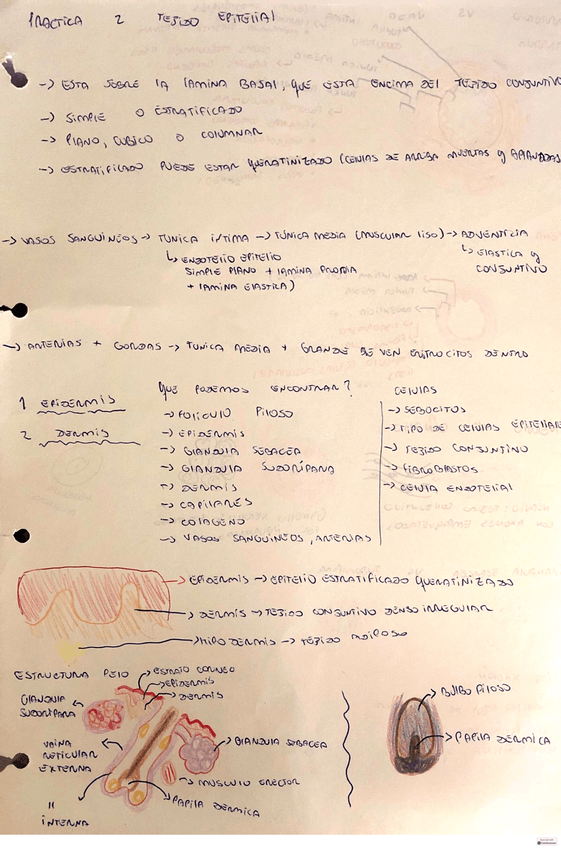 PRACTICA 2 TEJIDO EPITELIAL
-> ESTA SOBRE LA LAMINA BASAL, QUE ESTA ENCIMA DEL TEJIDO CONJUNTIVO
-> SIMPLE O ESTRATIFICADO
-> PLANO, CUBICO O COLUMNAR
-> ESTRATIFICADO PUEDE ESTAR QUERATINIZADO (CELULAS DE ARRIBA MUERTAS y APLANADAS
-> VASOS SANGUINEOS -> TUNICA INTIMA -> TUNICA MEDIA (MUSCULAR LISO) -> ADVENTICIA
↳ ENDOTELIO EPITELIO SIMPLE PLANO + LAMINA PROPIA + LAMINA ELASTICA)
↳ ELASTICA y CONJUNTIVO
-> ARTERIAS + GORDAS -> TUNICA MEDIA + GRANDE SE VEN ERITROCITOS DENTRO
1 EPIDERMIS
2 DERMIS
QUE PODEMOS ENCONTRAR?
-> FOLICULO PILOSO
-> EPIDERMIS
-> GLANDULA SEBACEA
-> GLANDULA SUDORIPARA
-> DERMIS
-> CAPILARES
-> COLAGENO
-> VASOS SANGUINEOS, ARTERIAS
CELULAS
-> SEBOCITOS
-> TIPO DE CELULAS EPITELIARES
-> TEJIDO CONJUNTIVO
-> FIBROBLASTOS
-> CELULA ENDOTELIAL
-> EPIDERMIS -> EPITELIO ESTRATIFICADO QUERATINIZADO
-> DERMIS -> TEJIDO CONJUNTIVO DENSO IRREGULAR
-> HIPODERMIS -> TEJIDO ADIPOSO
ESTRUCTURA PELO
-> ESTRATO CORNEO
-> EPIDERMIS
-> DERMIS
GLANDULA SUDORIPARA
VAINA RETICULAR EXTERNA
" INTERNA
-> GLANDULA SEBACEA
-> MUSCULO ERECTOR
-> PAPILA DERMICA
-> BULBO PILOSO
-> PAPILA DERMICA